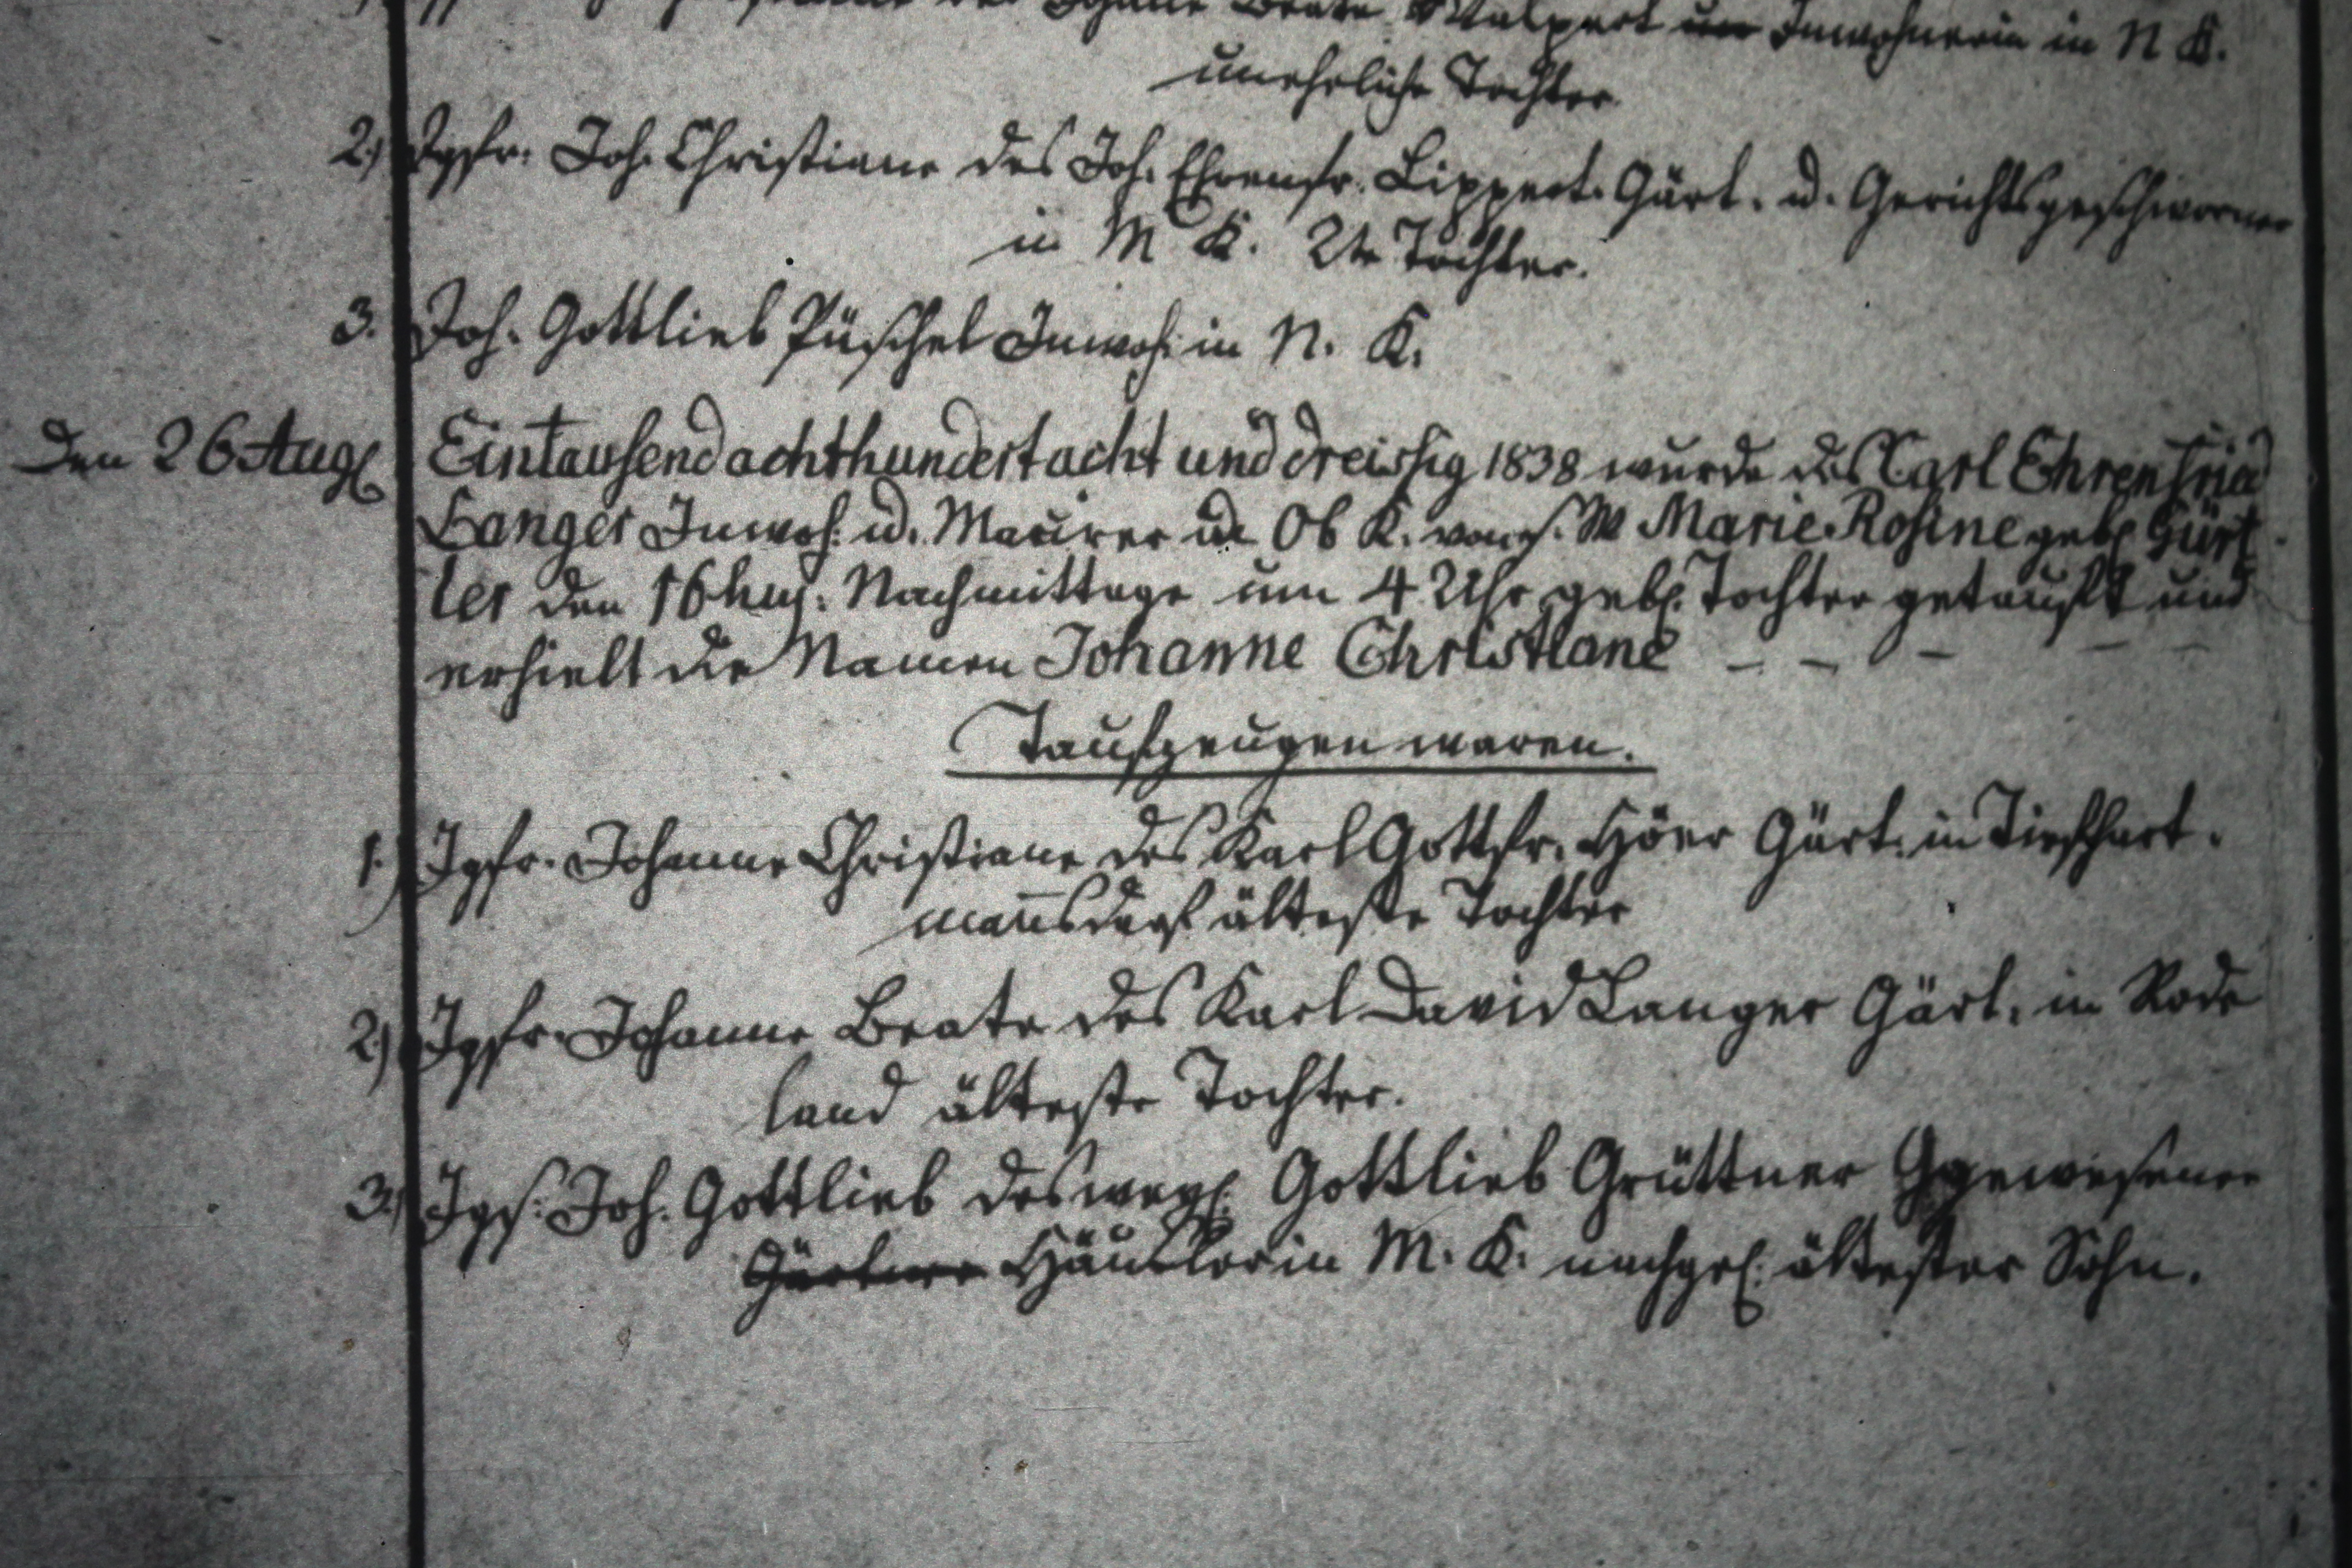 Johane Beate Walpert Inwohnerin in N K.
unehrliche Tochter
2.) Jgfr. Joh. Christiane des Joh. Ehrenfr. Lippert. Gärt. u. Gerichtsgeschworner
in M K. 2te Tochter.
3. Joh. Gottlieb Püschel Inwoh: in N. K.
Den 26 Augl Eintausend achthundert acht und dreissig 1838 wurde des Carl Ehrenfried
Langer Inwoh. u. Maurer in Ob K. von s. W Marie Rosine gebl Gürt
ler den 16 huj. Nachmittage um 4 Uhr gebl. Tochter getauft und
erhielt die Namen Johanne Christiane – – – – –
Taufzeugen waren.
1.) Jgfr. Johanne Christiane des Karl Gottfr. Höer Gärt. in Tiefhart.
man̄sdorf älteste Tochter
2.) Jgfr. Johanne Beate des Karl David Langer Gärt. in Rode
land älteste Tochter.
3.) Jgs. Joh. Gottlieb des weyl. Gottlieb Grüttner gewesener
Gärtner Häusler in M. K. nachgel. ältester Sohn.